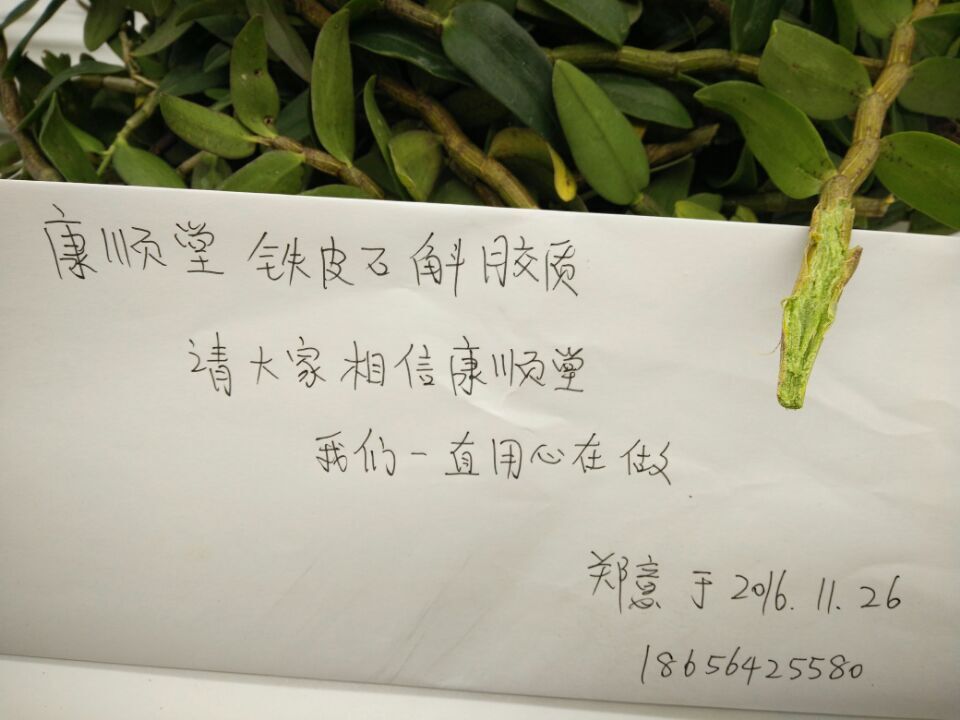 康顺堂 铁皮石斛胶质
请大家相信康顺堂
我们一直用心在做
郑意 于 2016.11.26
18656425580